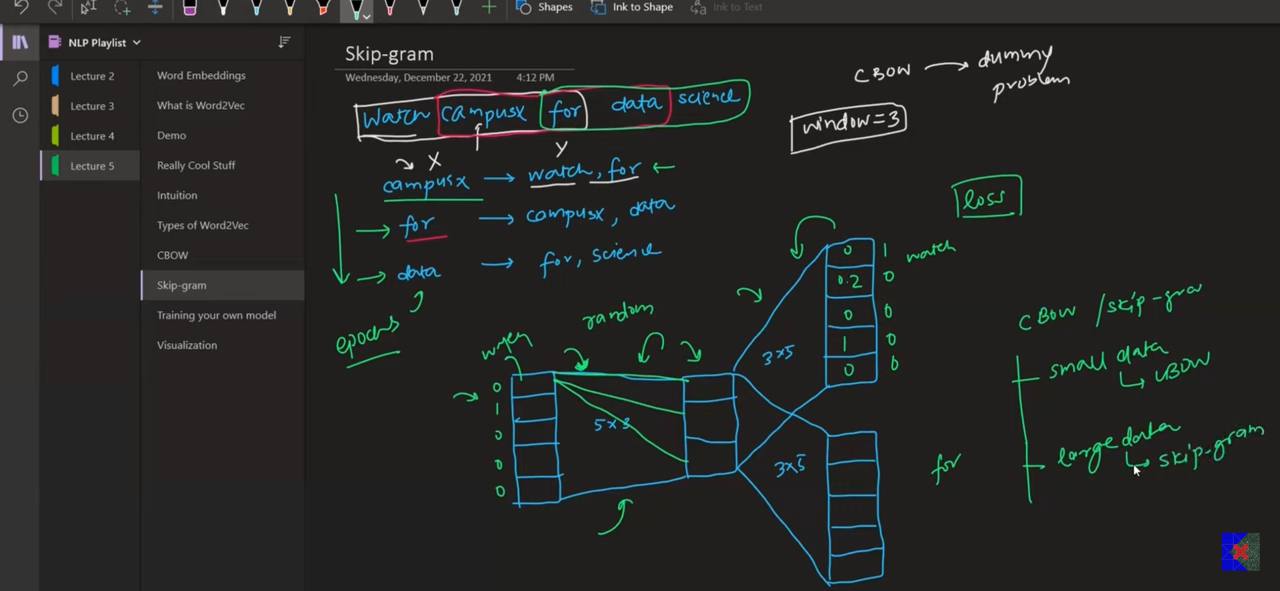 Shapes
Ink to Shape
Ink to Text
NLP Playlist
Lecture 2
Lecture 3
Lecture 4
Lecture 5
Word Embeddings
What is Word2Vec
Demo
Really Cool Stuff
Intuition
Types of Word2Vec
CBOW
Skip-gram
Training your own model
Visualization
Skip-gram
Wednesday, December 22, 2021 4:12 PM
CBOW → dummy
problem
watch campusx for data science
window=3
X Y
campusx → watch, for ←
→ for → campusx, data
→ data → for, science
epochs
loss
random
0
1
0
0
0
5x3
3x5
0 1 watch
0.2 0
0 0
1 0
0 0
3x5
for
CBOW /skip-gra
small data
↳ CBOW
large data
↳ skip-gram